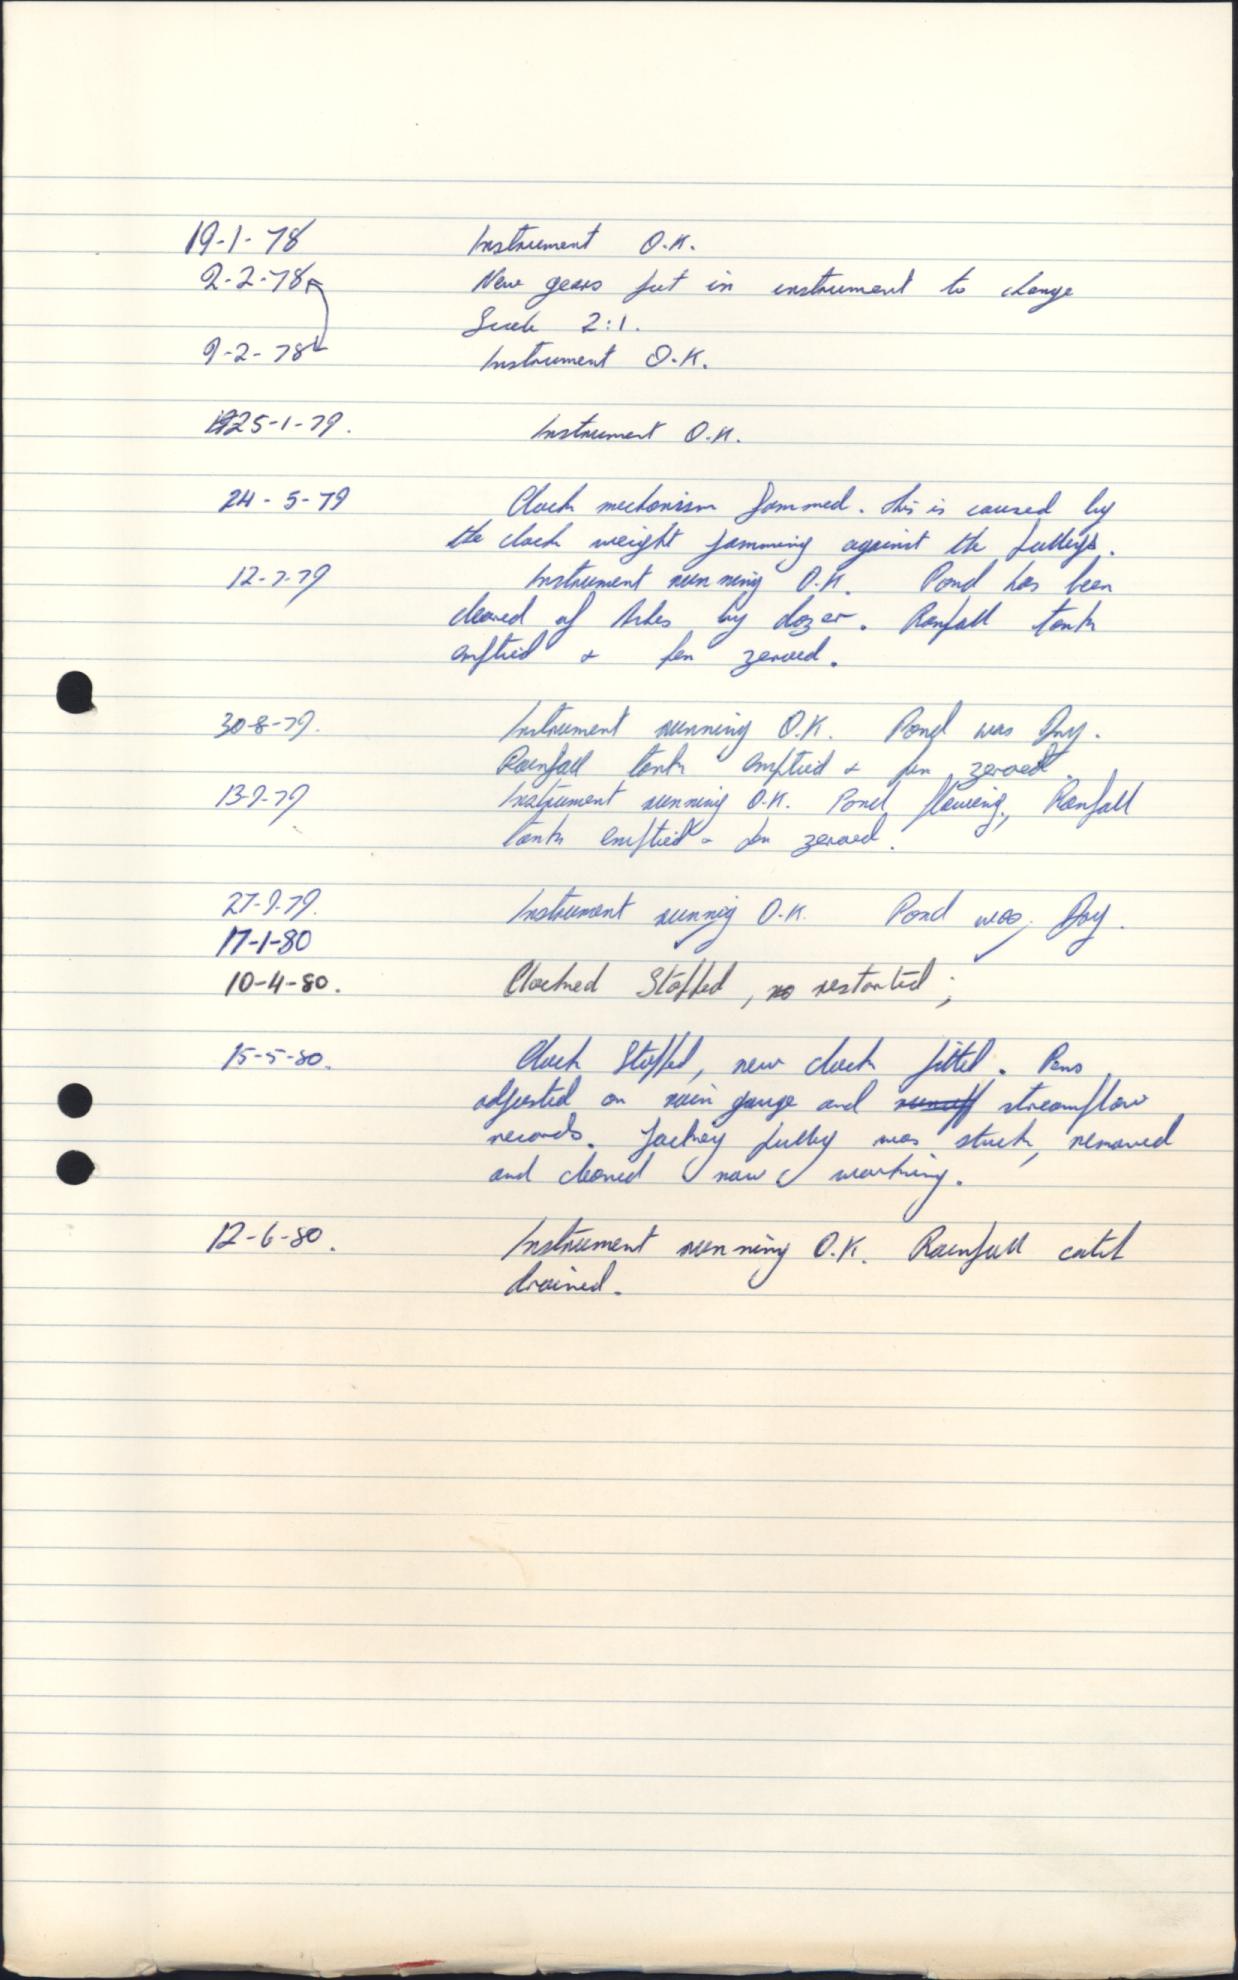 19-1-78 Instrument O.K.
9-2-78 New gears put in instrument to change
Scale 2:1.
9-2-78 Instrument O.K.
25-1-79. Instrument O.K.
24-5-79 Clock mechanism Jammed. This is caused by
the clock weight jamming against the pulleys.
12-7-79 Instrument running O.K. Pond has been
cleared of by dozer. Rainfall tank
emptied & pen zeroed.
30-8-79. Intrument running O.K. Pond was Dry.
Rainfall tank emptied & pen zeroed.
13-9-79 Instrument running O.K. Pond flowing, Rainfall
tank emptied & pen zeroed.
27-9-79. Instrument running O.K. Pond was Dry.
17-1-80
10-4-80. Clocked Stopped, restarted;
15-5-80. Clock Stopped, new clock fitted. Pens
adjusted on rain gauge and runoff streamflow
records. Jockey pulley was stuck, removed
and cleaned now working.
12-6-80. Instrument running O.K. Rainfall catch
drained.